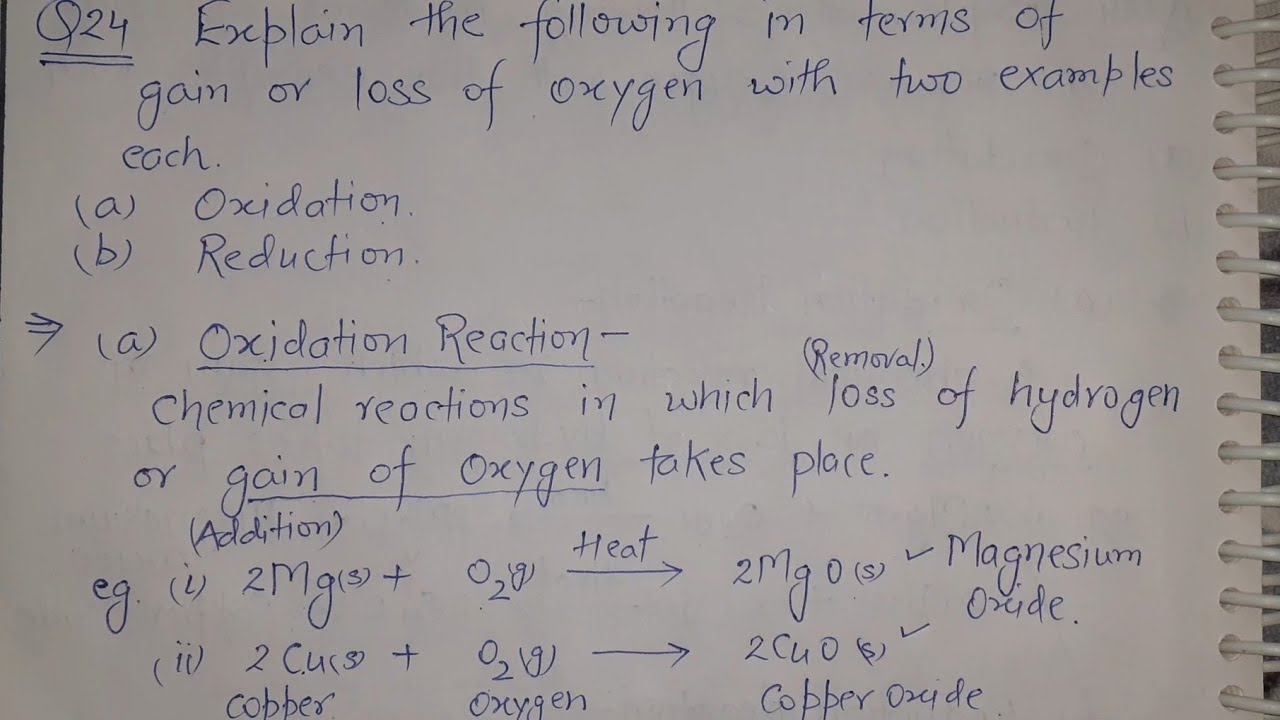 Q24 Explain the following in terms of
gain or loss of oxygen with two examples
each.
(a) Oxidation.
(b) Reduction.
⇒ (a) Oxidation Reaction –
(Removal.)
Chemical reactions in which loss of hydrogen
or gain of Oxygen takes place.
(Addition)
eg. (i) 2Mg(s) + O₂(g) —Heat→ 2MgO(s) ✓ Magnesium
Oxide.
(ii) 2Cu(s) + O₂(g) ⟶ 2CuO(s) ✓
Copper Oxygen Copper Oxide